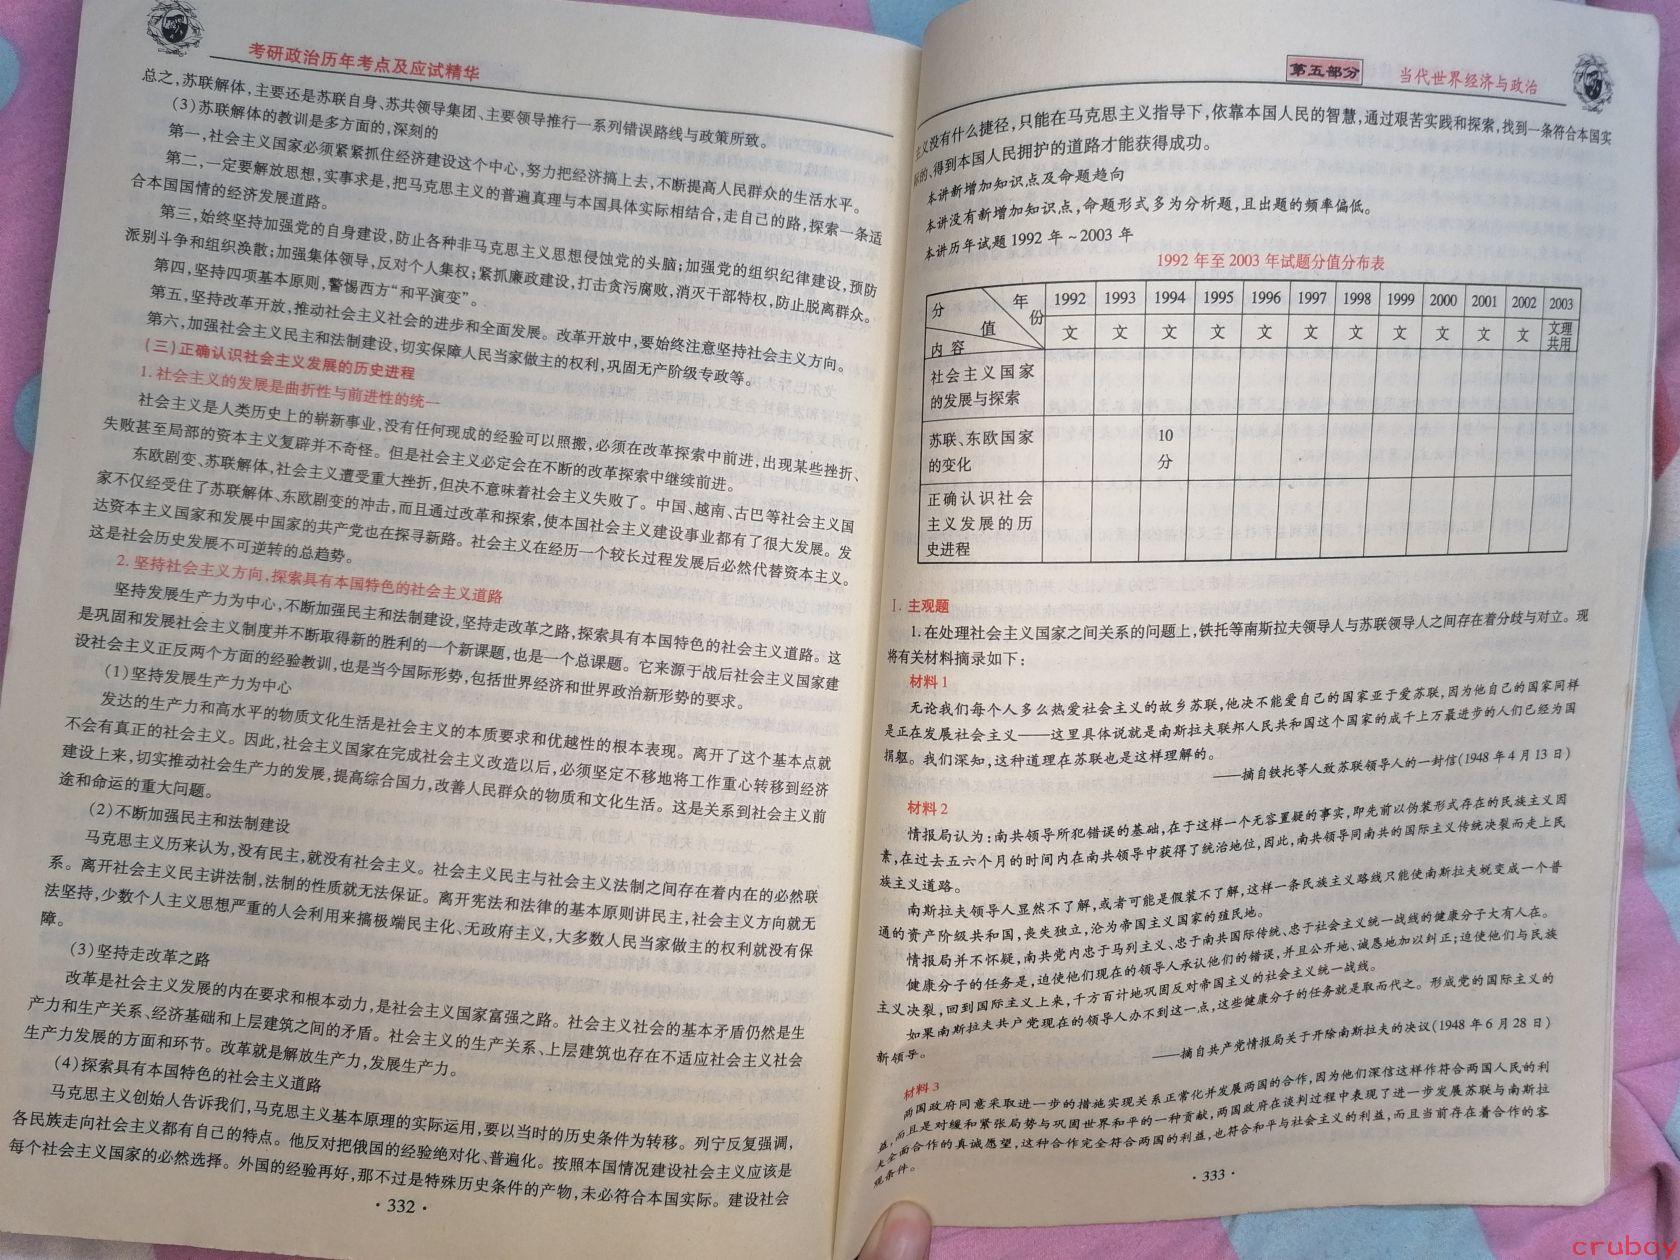 考研政治历年考点及应试精华
总之,苏联解体,主要还是苏联自身、苏共领导集团、主要领导推行一系列错误路线与政策所致。
(3)苏联解体的教训是多方面的,深刻的
第一,社会主义国家必须紧紧抓住经济建设这个中心,努力把经济搞上去,不断提高人民群众的生活水平。
第二,一定要解放思想,实事求是,把马克思主义的普遍真理与本国具体实际相结合,走自己的路,探索一条适
合本国国情的经济发展道路。
第三,始终坚持加强党的自身建设,防止各种非马克思主义思想侵蚀党的头脑;加强党的组织纪律建设,预防
派别斗争和组织涣散;加强集体领导,反对个人集权;紧抓廉政建设,打击贪污腐败,消灭干部特权,防止脱离群众。
第四,坚持四项基本原则,警惕西方“和平演变”。
第五,坚持改革开放,推动社会主义社会的进步和全面发展。改革开放中,要始终注意坚持社会主义方向。
第六,加强社会主义民主和法制建设,切实保障人民当家做主的权利,巩固无产阶级专政等。
(三)正确认识社会主义发展的历史进程
1.社会主义的发展是曲折性与前进性的统一
社会主义是人类历史上的崭新事业,没有任何现成的经验可以照搬,必须在改革探索中前进,出现某些挫折、
失败甚至局部的资本主义复辟并不奇怪。但是社会主义必定会在不断的改革探索中继续前进。
东欧剧变、苏联解体,社会主义遭受重大挫折,但决不意味着社会主义失败了。中国、越南、古巴等社会主义国
家不仅经受住了苏联解体、东欧剧变的冲击,而且通过改革和探索,使本国社会主义建设事业都有了很大发展。发
达资本主义国家和发展中国家的共产党也在探寻新路。社会主义在经历一个较长过程发展后必然代替资本主义。
这是社会历史发展不可逆转的总趋势。
2.坚持社会主义方向,探索具有本国特色的社会主义道路
坚持发展生产力为中心,不断加强民主和法制建设,坚持走改革之路,探索具有本国特色的社会主义道路。这
是巩固和发展社会主义制度并不断取得新的胜利的一个新课题,也是一个总课题。它来源于战后社会主义国家建
设社会主义正反两个方面的经验教训,也是当今国际形势,包括世界经济和世界政治新形势的要求。
(1)坚持发展生产力为中心
发达的生产力和高水平的物质文化生活是社会主义的本质要求和优越性的根本表现。离开了这个基本点就
不会有真正的社会主义。因此,社会主义国家在完成社会主义改造以后,必须坚定不移地将工作重心转移到经济
建设上来,切实推动社会生产力的发展,提高综合国力,改善人民群众的物质和文化生活。这是关系到社会主义前
途和命运的重大问题。
(2)不断加强民主和法制建设
马克思主义历来认为,没有民主,就没有社会主义。社会主义民主与社会主义法制之间存在着内在的必然联
系。离开社会主义民主讲法制,法制的性质就无法保证。离开宪法和法律的基本原则讲民主,社会主义方向就无
法坚持,少数个人主义思想严重的人会利用来搞极端民主化、无政府主义,大多数人民当家做主的权利就没有保
障。
(3)坚持走改革之路
改革是社会主义发展的内在要求和根本动力,是社会主义国家富强之路。社会主义社会的基本矛盾仍然是生
产力和生产关系、经济基础和上层建筑之间的矛盾。社会主义的生产关系、上层建筑也存在不适应社会主义社会
生产力发展的方面和环节。改革就是解放生产力,发展生产力。
(4)探索具有本国特色的社会主义道路
马克思主义创始人告诉我们,马克思主义基本原理的实际运用,要以当时的历史条件为转移。列宁反复强调,
各民族走向社会主义都有自己的特点。他反对把俄国的经验绝对化、普遍化。按照本国情况建设社会主义应该是
每个社会主义国家的必然选择。外国的经验再好,那不过是特殊历史条件的产物,未必符合本国实际。建设社会
·332·
第五部分 当代世界经济与政治
主义没有什么捷径,只能在马克思主义指导下,依靠本国人民的智慧,通过艰苦实践和探索,找到一条符合本国实
际的、得到本国人民拥护的道路才能获得成功。
本讲新增加知识点及命题趋向
本讲没有新增加知识点,命题形式多为分析题,且出题的频率偏低。
本讲历年试题1992年~2003年
1992年至2003年试题分值分布表
分值 年份 内容 1992 1993 1994 1995 1996 1997 1998 1999 2000 2001 2002 2003
文 文 文 文 文 文 文 文 文 文 文 文理共用
社会主义国家
的发展与探索
苏联、东欧国家 10
的变化 分
正确认识社会
主义发展的历
史进程
I.主观题
1.在处理社会主义国家之间关系的问题上,铁托等南斯拉夫领导人与苏联领导人之间存在着分歧与对立。现
将有关材料摘录如下:
材料1
无论我们每个人多么热爱社会主义的故乡苏联,他决不能爱自己的国家亚于爱苏联,因为他自己的国家同样
是正在发展社会主义——这里具体说就是南斯拉夫联邦人民共和国这个国家的成千上万最进步的人们已经为国
捐躯。我们深知,这种道理在苏联也是这样理解的。
——摘自铁托等人致苏联领导人的一封信(1948年4月13日)
材料2
情报局认为:南共领导所犯错误的基础,在于这样一个无容置疑的事实,即先前以伪装形式存在的民族主义因
素,在过去五六个月的时间内在南共领导中获得了统治地位,因此,南共领导同南共的国际主义传统决裂而走上民
族主义道路。
南斯拉夫领导人显然不了解,或者可能是假装不了解,这样一条民族主义路线只能使南斯拉夫蜕变成一个普
通的资产阶级共和国,丧失独立,沦为帝国主义国家的殖民地。
情报局并不怀疑,南共党内忠于马列主义、忠于南共国际传统、忠于社会主义统一战线的健康分子大有人在。
健康分子的任务是,迫使他们现在的领导人承认他们的错误,并且公开地、诚恳地加以纠正;迫使他们与民族
主义决裂,回到国际主义上来,千方百计地巩固反对帝国主义的社会主义统一战线。
如果南斯拉夫共产党现在的领导人办不到这一点,这些健康分子的任务就是取而代之。形成党的国际主义的
新领导。
——摘自共产党情报局关于开除南斯拉夫的决议(1948年6月28日)
材料3
两国政府同意采取进一步的措施实现关系正常化并发展两国的合作,因为他们深信这样作符合两国人民的利
益,而且是对缓和紧张局势与巩固世界和平的一种贡献,两国政府在谈判过程中表现了进一步发展苏联与南斯拉
夫全面合作的真诚愿望,这种合作完全符合两国的利益,也符合和平与社会主义的利益,而且当前存在着合作的客
观条件。
·333·
cruboy